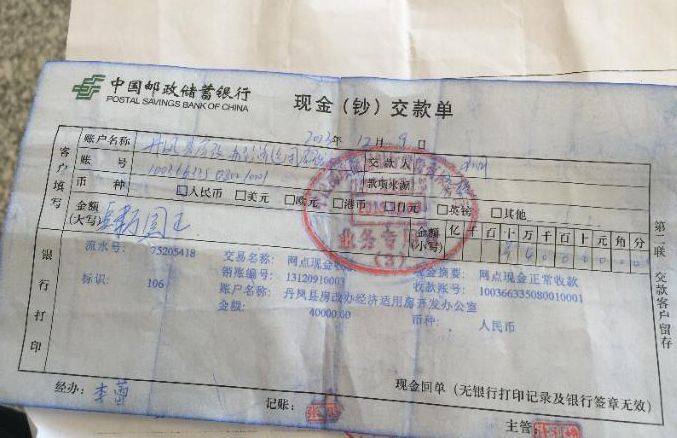 中国邮政储蓄银行
POSTAL SAVINGS BANK OF CHINA
现金（钞）交款单
年12月9日
客户填写
账户名称
交款人
账号
款项来源
币种 □人民币 □美元 □欧元 □港币 □日元 □英镑 □其他
金额(大写) 肆万圆正
金额(小写) 亿千百十万千百十元角分
业务专用
(3)
第二联 交款客户留存
银行打印
流水号: 75205418 交易名称: 网点现金收款 现金摘要: 网点现金正常收款
销账编号: 13120910003 收款账号: 100366335080010001
标识: 106 账户名称: 丹凤县房改办经济适用房开发办公室
金额: 40000.00 币种: 人民币
现金回单（无银行打印记录及银行签章无效）
经办: 李
记账: 张
主管